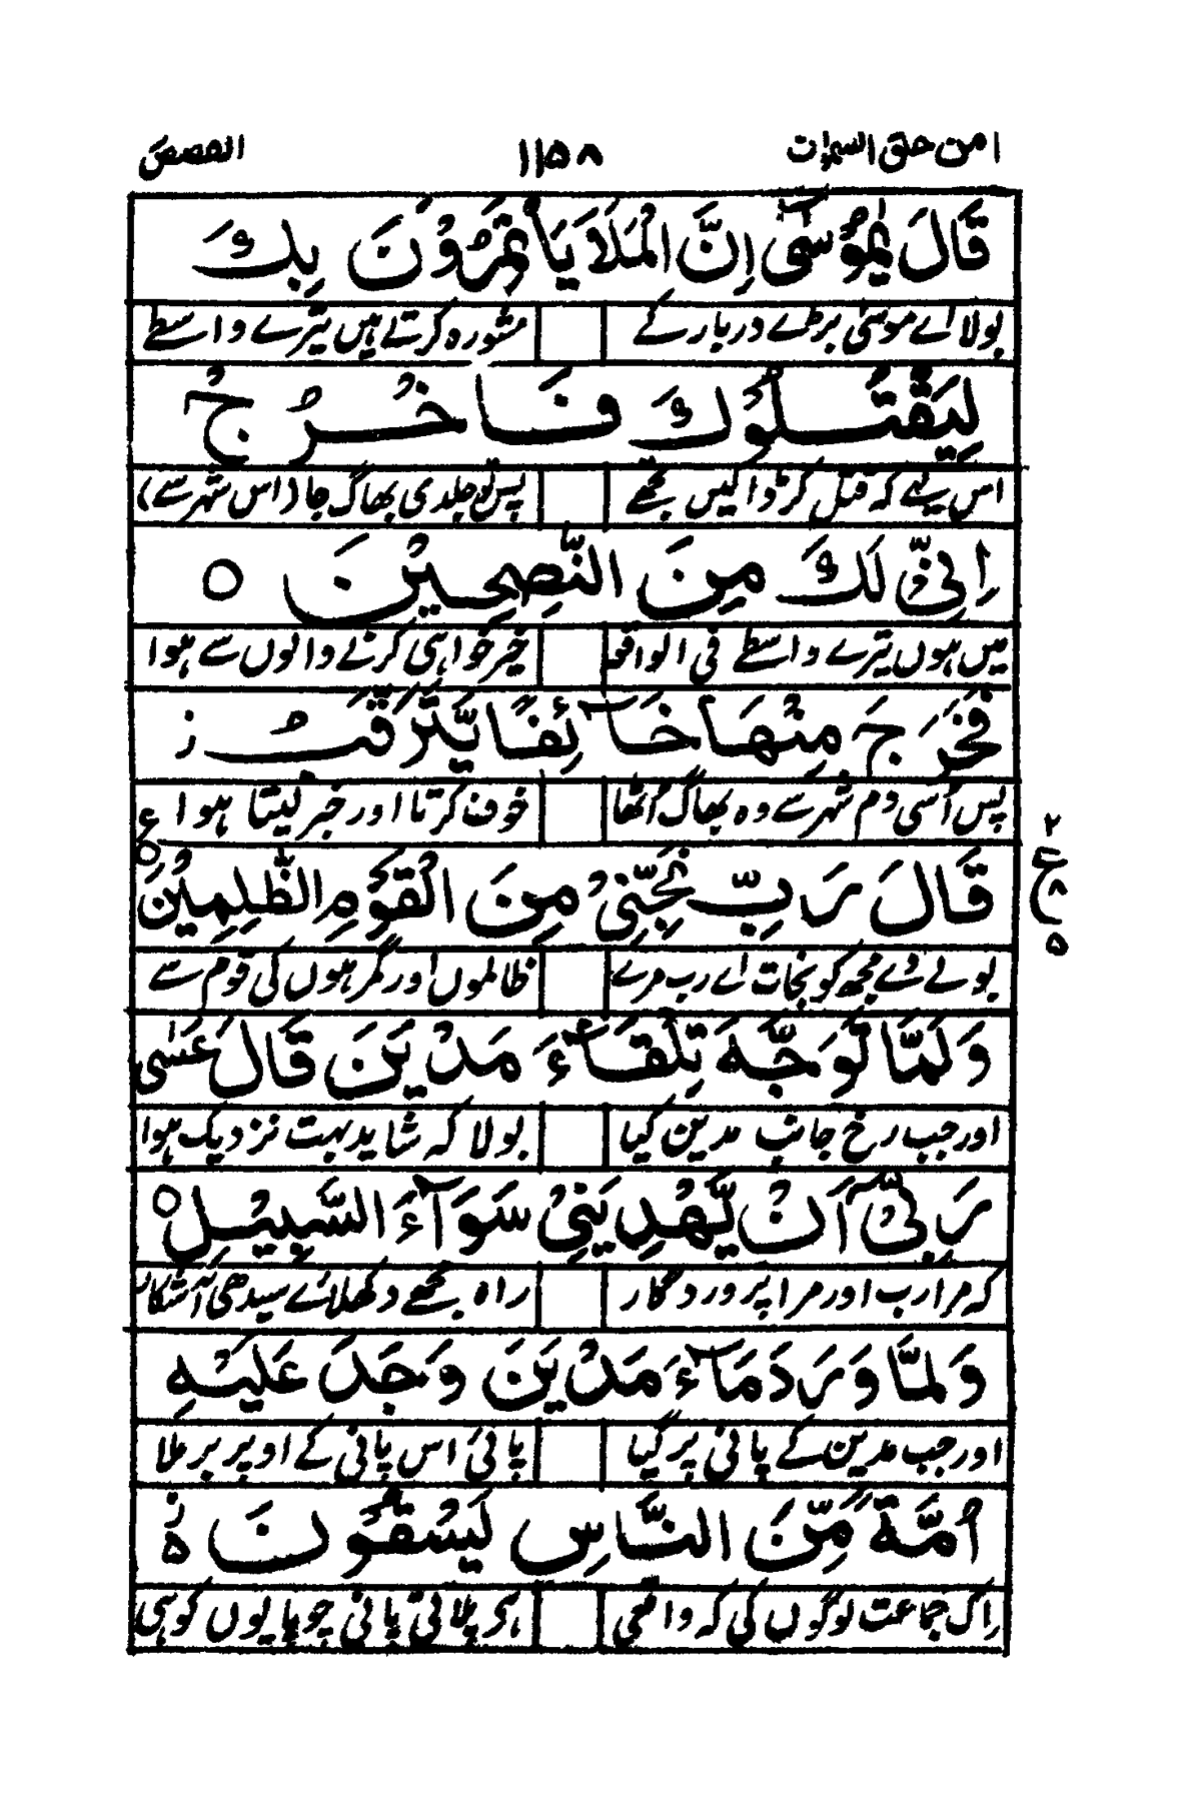 امن خلق السمٰوٰت ۱۱۵۸ القصص
قَالَ يٰمُوْسٰٓى اِنَّ الْمَلَاَ يَاْتَمِرُوْنَ بِكَ
بولا اے موسیٰ بڑے دربار کے مشورہ کرتے ہیں تیرے واسطے
لِيَقْتُلُوْكَ فَاخْرُجْ
اس لیے کہ قتل کر ڈالیں تجھے پس تو جلدی بھاگ جا (اس شہر سے)
اِنِّيْ لَكَ مِنَ النّٰصِحِيْنَ ○
میں ہوں تیرے واسطے فی الواقعہ خیر خواہی کرنے والوں سے ہوا
فَخَرَجَ مِنْهَا خَآئِفًا يَّتَرَقَّبُ ز
پس اُسی دم شہر سے وہ بھاگ اُٹھا خوف کرتا اور خبر لیتا ہوا
۲
قَالَ رَبِّ نَجِّنِيْ مِنَ الْقَوْمِ الظّٰلِمِيْنَ ○ ع
ع ۸
۵
بولے دے مجھ کو نجات اے رب مرے ظالموں اور گمرہوں کی قوم سے
وَلَمَّا تَوَجَّهَ تِلْقَآءَ مَدْيَنَ قَالَ عَسٰى
اور جب رخ جانب مدین کیا بولا کہ شاید بہت نزدیک ہوا
رَبِّيْٓ اَنْ يَّهْدِيَنِيْ سَوَآءَ السَّبِيْلِ ○
کہ مرا رب اور مرا پروردگار راہ مجھے دکھلائے سیدھی آشکار
وَلَمَّا وَرَدَ مَآءَ مَدْيَنَ وَجَدَ عَلَيْهِ
اور جب مدین کے پانی پر گیا پائی اس پانی کے اوپر برملا
اُمَّةً مِّنَ النَّاسِ يَسْقُوْنَ ە ز
اِک جماعت لوگوں کی کہ واقعی ہے پلاتی پانی چوپایوں کو ہی